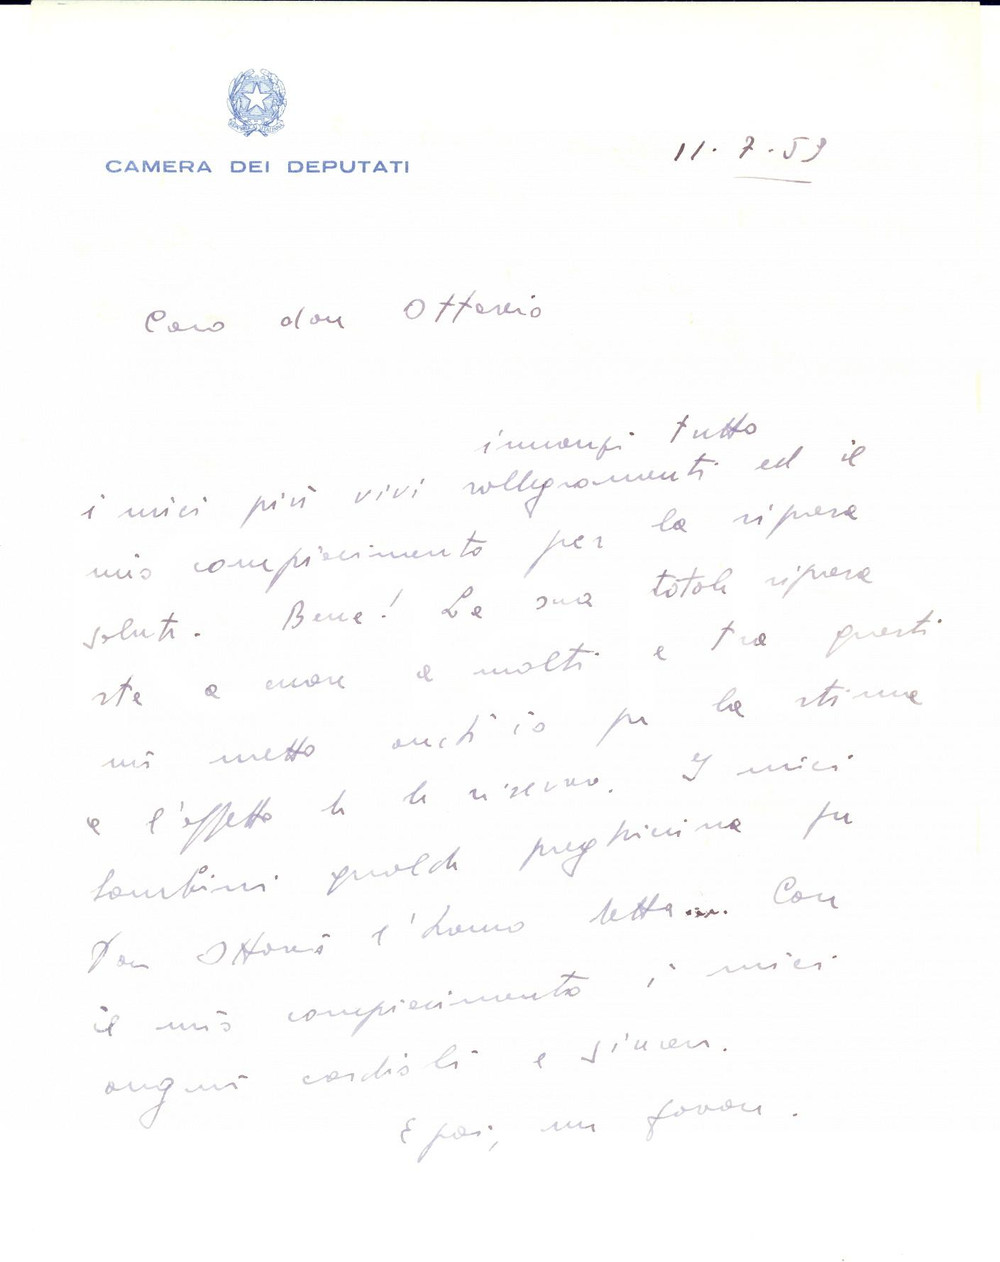 CAMERA DEI DEPUTATI
11·7·59
Caro don Ottavio
innanzi tutto
i miei più vivi rallegramenti ed il
mio compiacimento per la ripresa
salute. Bene! La sua totale ripresa
sta a cuore a molti e tra questi
mi metto anch'io per la stima
e l'affetto che le riservo. I miei
bambini qualche preghierina per
Don Ottavio l'hanno detta.... Con
il mio compiacimento i miei
auguri cordiali e sinceri.
E poi, un favore.